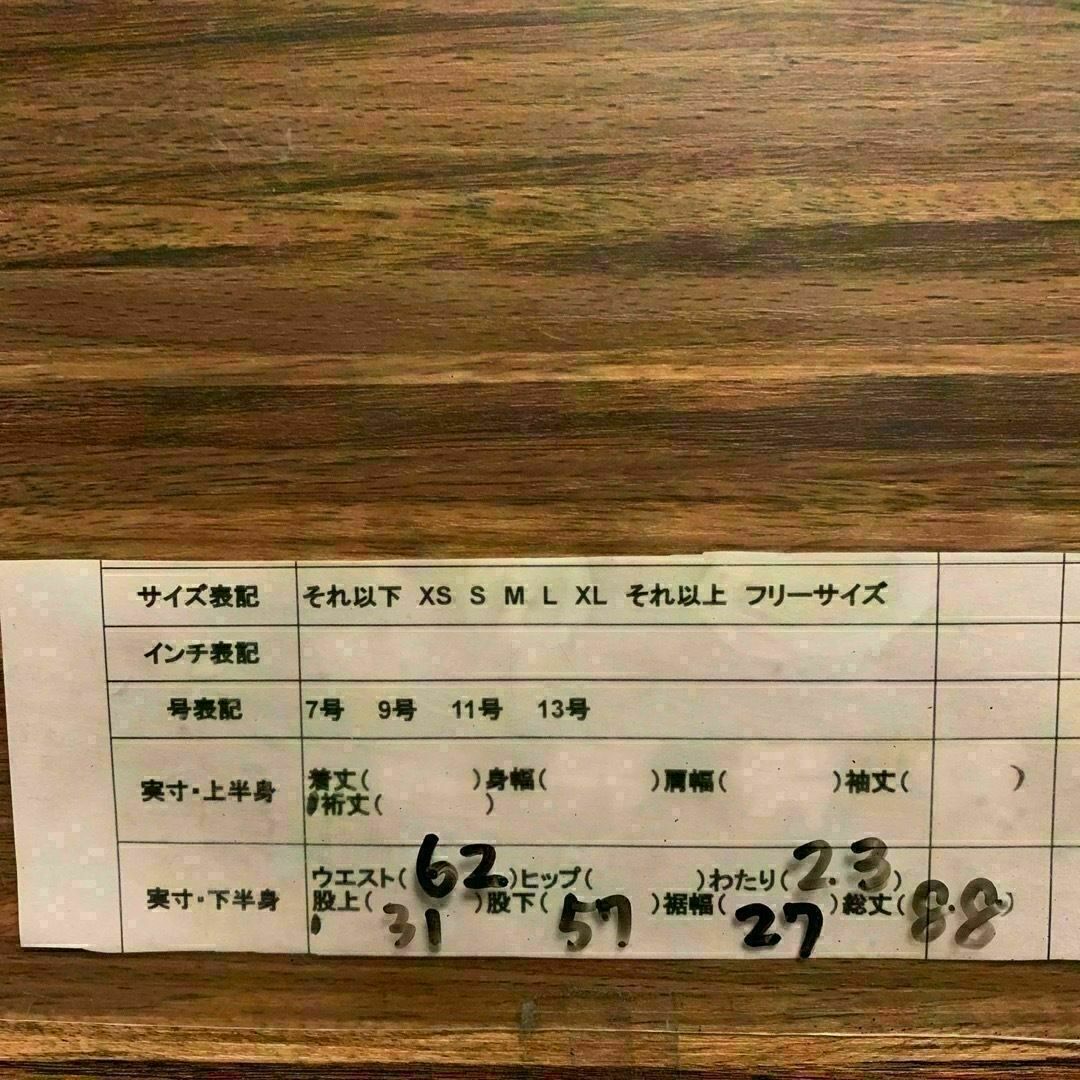 サイズ表記 それ以下 XS S M L XL それ以上 フリーサイズ
インチ表記
号表記 7号 9号 11号 13号
実寸・上半身 着丈( )身幅( )肩幅( )袖丈( )
裄丈( )
実寸・下半身 ウエスト( 62 )ヒップ( )わたり( 23 )
股上( 31 )股下( 57 )裾幅( 27 )総丈( 88 )